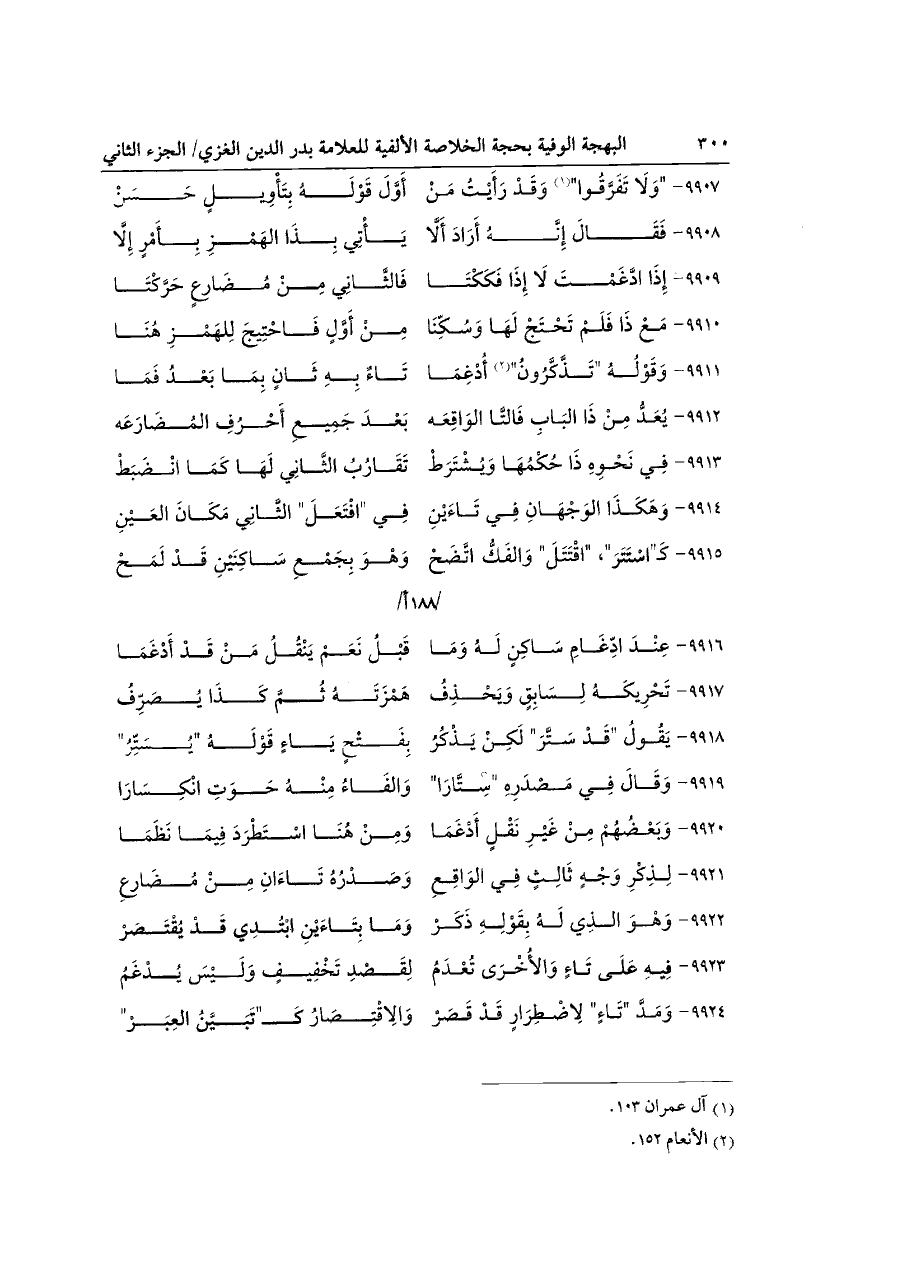 ٣٠٠ البهجة الوفية بحجة الخلاصة الألفية للعلامة بدر الدين الغزي/ الجزء الثاني
٩٩٠٧- "وَلَا تَفَرَّقُوا"(١) وَقَدْ رَأَيْتُ مَنْ أَوَّلَ قَوْلَـهُ بِتَأْوِيـلٍ حَـسَنْ
٩٩٠٨- فَقَـالَ إِنَّـهُ أَرَادَ أَلَّا يَـأْتِي بِـذَا الهَمْـزِ بِـأَمْرٍ إِلَّا
٩٩٠٩- إِذَا ادَّغَمْـتَ لَا إِذَا فَكَكْتَـا فَالثَّـانِي مِـنْ مُـضَارِعٍ حَرَّكْتَـا
٩٩١٠- مَعْ ذَا فَلَمْ تَحْتَجْ لَهَا وَسُكِّنَا مِـنْ أَوَّلٍ فَـاحْتِيجَ لِلهَمْـزِ هُنَـا
٩٩١١- وَقَوْلُـهُ "تَـذَّكَّرُونُ"(٢) أُدْغِمَـا تَـاءٌ بِـهِ ثَـانٍ بِمَـا بَعْـدُ فَمَـا
٩٩١٢- يُعَدُّ مِنْ ذَا البَابِ فَالتَّا الوَاقِعَه بَعْـدَ جَمِيـعِ أَحْـرُفِ المُـضَارَعَه
٩٩١٣- فِـي نَحْوِهِ ذَا حُكْمُهَـا وَيُشْتَرَطْ تَقَـارُبُ الثَّـانِي لَهَـا كَمَـا انْـضَبَطْ
٩٩١٤- وَهَكَـذَا الوَجْهَـانِ فِـي تَـاءَيْنِ فِـي "افْتَعَـلَ" الثَّـانِي مَكَـانَ العَـيْنِ
٩٩١٥- كَـ"اسْتَتَرَ"، "اقْتَتَلَ" وَالفَكُّ اتَّضَحْ وَهْـوَ بِجَمْـعِ سَـاكِنَيْنِ قَـدْ لَمَـحْ
/١٨٨أ/
٩٩١٦- عِنْـدَ ادِّغَـامِ سَـاكِنٍ لَـهُ وَمَـا قَبْـلُ نَعَـمْ يَنْقُـلُ مَـنْ قَـدْ أَدْغَمَـا
٩٩١٧- تَحْرِيكَـهُ لِـسَابِقٍ وَيَحْـذِفُ هَمْزَتَـهُ ثُـمَّ كَـذَا يُـصَرِّفُ
٩٩١٨- يَقُـولُ "قَـدْ سَتَّرَ" لَكِـنْ يَـذْكُرُ بِفَـتْحِ يَـاءٍ قَوْلَـهُ "يُـسَتِّرُ"
٩٩١٩- وَقَـالَ فِـي مَـصْدَرِهِ "سِتَّارَا" وَالفَـاءُ مِنْـهُ حَـوَتِ انْكِـسَارَا
٩٩٢٠- وَبَعْضُهُمْ مِـنْ غَيْرِ نَقْلٍ أَدْغَمَا وَمِـنْ هُنَـا اسْـتَطْرَدَ فِيمَـا نَظَمَـا
٩٩٢١- لِـذِكْرِ وَجْـهٍ ثَالِـثٍ فِـي الوَاقِـعِ وَصَـدْرُهُ تَـاءَانِ مِـنْ مُـضَارِعِ
٩٩٢٢- وَهْـوَ الـذِي لَـهُ بِقَوْلِـهِ ذَكَـرْ وَمَـا بِتَـاءَيْنِ ابْتُـدِي قَـدْ يُقْتَـصَرْ
٩٩٢٣- فِيهِ عَلَـى تَـاءٍ وَالأُخْرَى تُعْدَمُ لِقَـصْدِ تَخْفِيـفٍ وَلَـيْسَ يُـدْغَمُ
٩٩٢٤- وَمَـدَّ "تَـاءٍ" لِاضْـطِرَارٍ قَـدْ قَصَرْ وَالِاقْتِـصَارُ كَـ"تَبَـيَّنُ العِبَـرْ"
(١) آل عمران ١٠٣.
(٢) الأنعام ١٥٢.